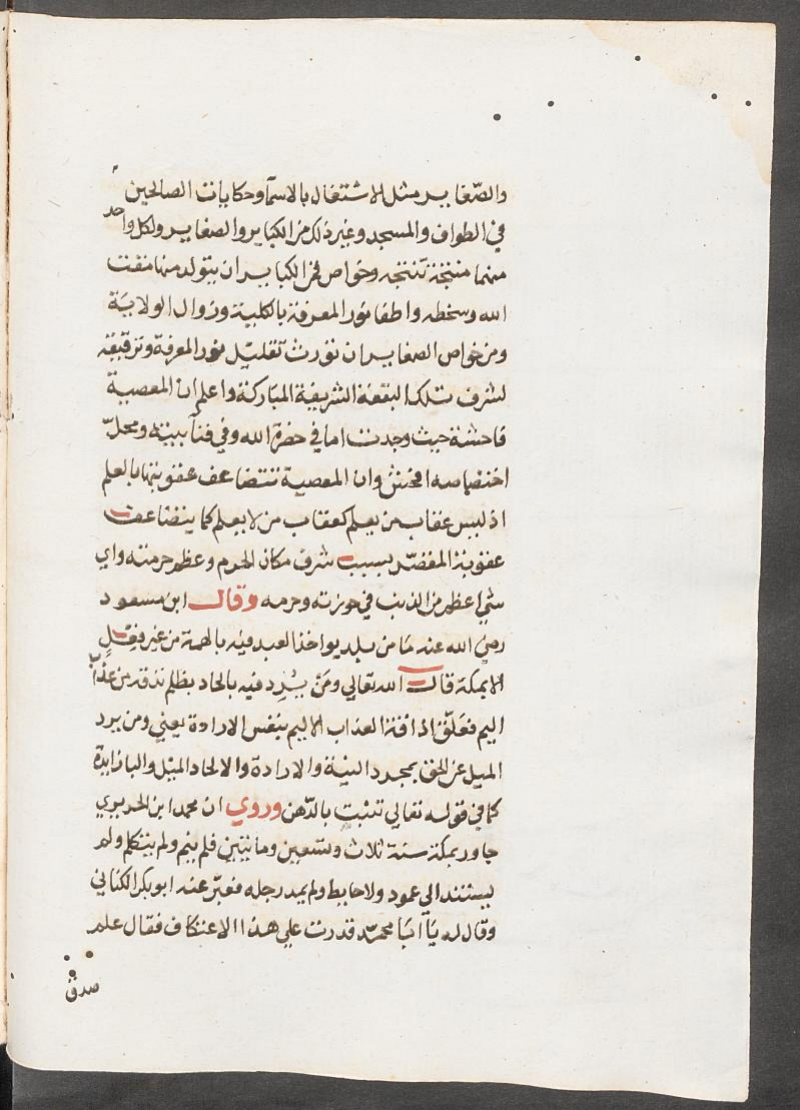 والصغاير مثل الاشتغال بالاسما وحكايات الصالحين
في الطواف والمسجد وغير ذلك من الكباير والصغاير ولكل واحد
منهما منتجة تنتجه وخواص فمن الكباير ان يتولد منها مقت
الله وسخطه واطفا نور المعرفة بالكلية وزوال الولاية
ومن خواص الصغاير ان تورث تقليل نور المعرفة وترقيقه
لشرف تلك البقعة الشريفة المباركة واعلم ان المعصية
فاحشة حيث وجدت اما في حضرة الله وفي فنآ بيته ومحلّ
اختصاصه افحش وان المعصية تتضاعف عقوبتها بالعلم
اذ ليس عقاب من يعلم كعقاب من لا يعلم كما يتضاعف
عقوبة المقصّر بسبب شرف مكان الحرم وعظم حرمته واي
شي اعظم من الذنب في حوزته وحرمه وقال ابن مسعود
رضي الله عنه ما من بلد يواخذ العبد فيه بالهمة من غير فعلٍ
الا بمكة قال الله تعالي ومَنْ يُرِد فيه بالحاد بظلم نذقه من عذاب
اليم فعَلّق اذاقة العذاب الاليم بنفس الارادة يعني ومن يرد
الميل عن الحق بمجرد النية والارادة والالحاد الميل والبا زايدة
كما في قوله تعالي تنبت بالدّهن وروي ان محمد ابن الحريري
جاور بمكة سنة ثلاث وتسعين وماتين فلم ينم ولم يتكلم ولم
يستند الي عمود ولا حايط ولم يمد رجله فعبرّ عنه ابو بكر الكناني
وقال له يَآ ابَا محمد قدرت علي هذا الاعتكاف فقال علم
صدق